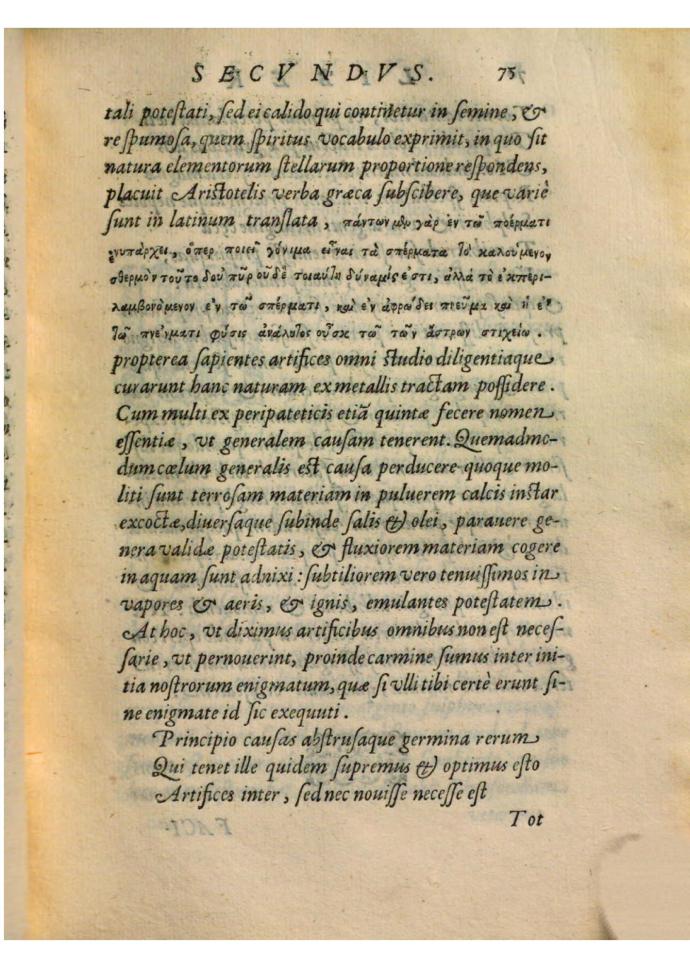 SECVNDVS. 75
tali potestati, sed ei calido qui continetur in semine, &
re spumosa, quem spiritus vocabulo exprimit, in quo sit
natura elementorum stellarum proportione respondens,
placuit Aristotelis verba græca subscibere, que variè
sunt in latinum translata, πάντων μὲν γὰρ ἐν τῶ ποέρματι
ἐνυπάρχει, ὅπερ ποιεῖ γόνιμα εἶναι τὰ σπέρματα τὸ καλούμενον
θερμὸν τοῦτο δ' οὐ πῦρ οὐδὲ τοιαύτη δύναμίς ἐστι, ἀλλά τὸ ἐκπερι-
λαμβονόμενον ἐν τῶ σπέρματι, καὶ ἐν ἀφρώδει πνεῦμα καὶ ἡ ἐν
τῶ πνεύματι φύσις ἀνάλογος οὖσα τῶ τῶν ἄστρων στιχείω.
propterea sapientes artifices omni studio diligentiaque
curarunt hanc naturam ex metallis tractam possidere.
Cum multi ex peripateticis etiã quintæ fecere nomen
essentiæ, vt generalem causam tenerent. Quemadmo-
dum cœlum generalis est causa perducere quoque mo-
liti sunt terrosam materiam in puluerem calcis instar
excoctæ, diuersaque subinde salis & olei, parauere ge-
nera validæ potestatis, & fluxiorem materiam cogere
in aquam sunt adnixi: subtiliorem vero tenuissimos in
vapores & aeris, & ignis, emulantes potestatem.
At hoc, vt diximus artificibus omnibus non est neces-
sarie, vt pernouerint, proinde carmine sumus inter ini-
tia nostrorum enigmatum, quæ si vlli tibi certè erunt si-
ne enigmate id sic exequuti.
Principio causas abstrusaque germina rerum
Qui tenet ille quidem supremus & optimus esto
Artifices inter, sed nec nouisse necesse est
Tot